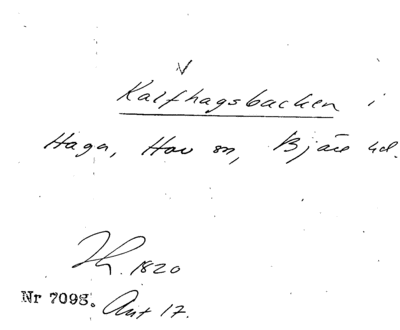 V
Kalfhagsbacken i
Haga, Hov sn, Bjäre hd.
Th. 1820
Nr 7098. Ant 17.